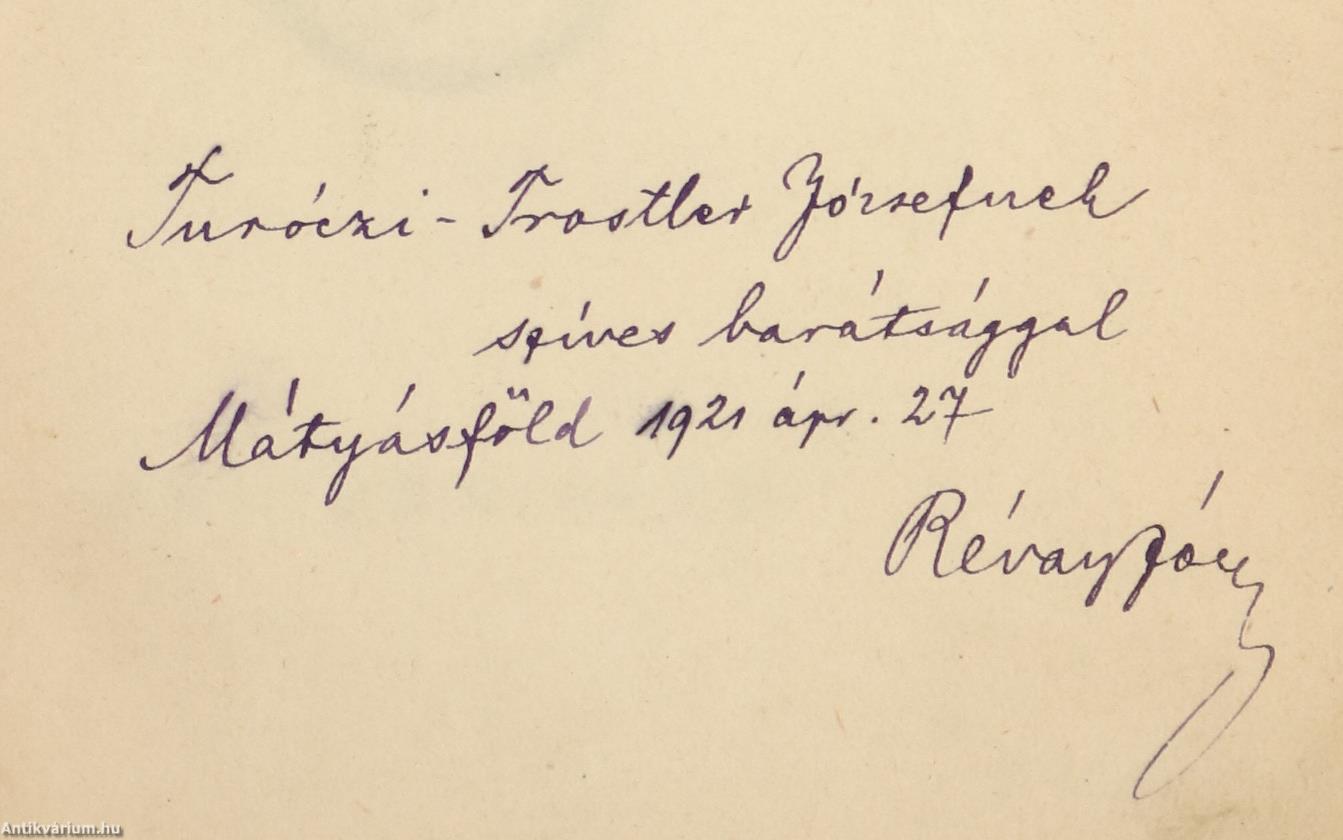 Turóczi-Trostler Józsefnek
szíves barátsággal
Mátyásföld 1921 ápr. 27
Révay Józ
Antikvárium.hu